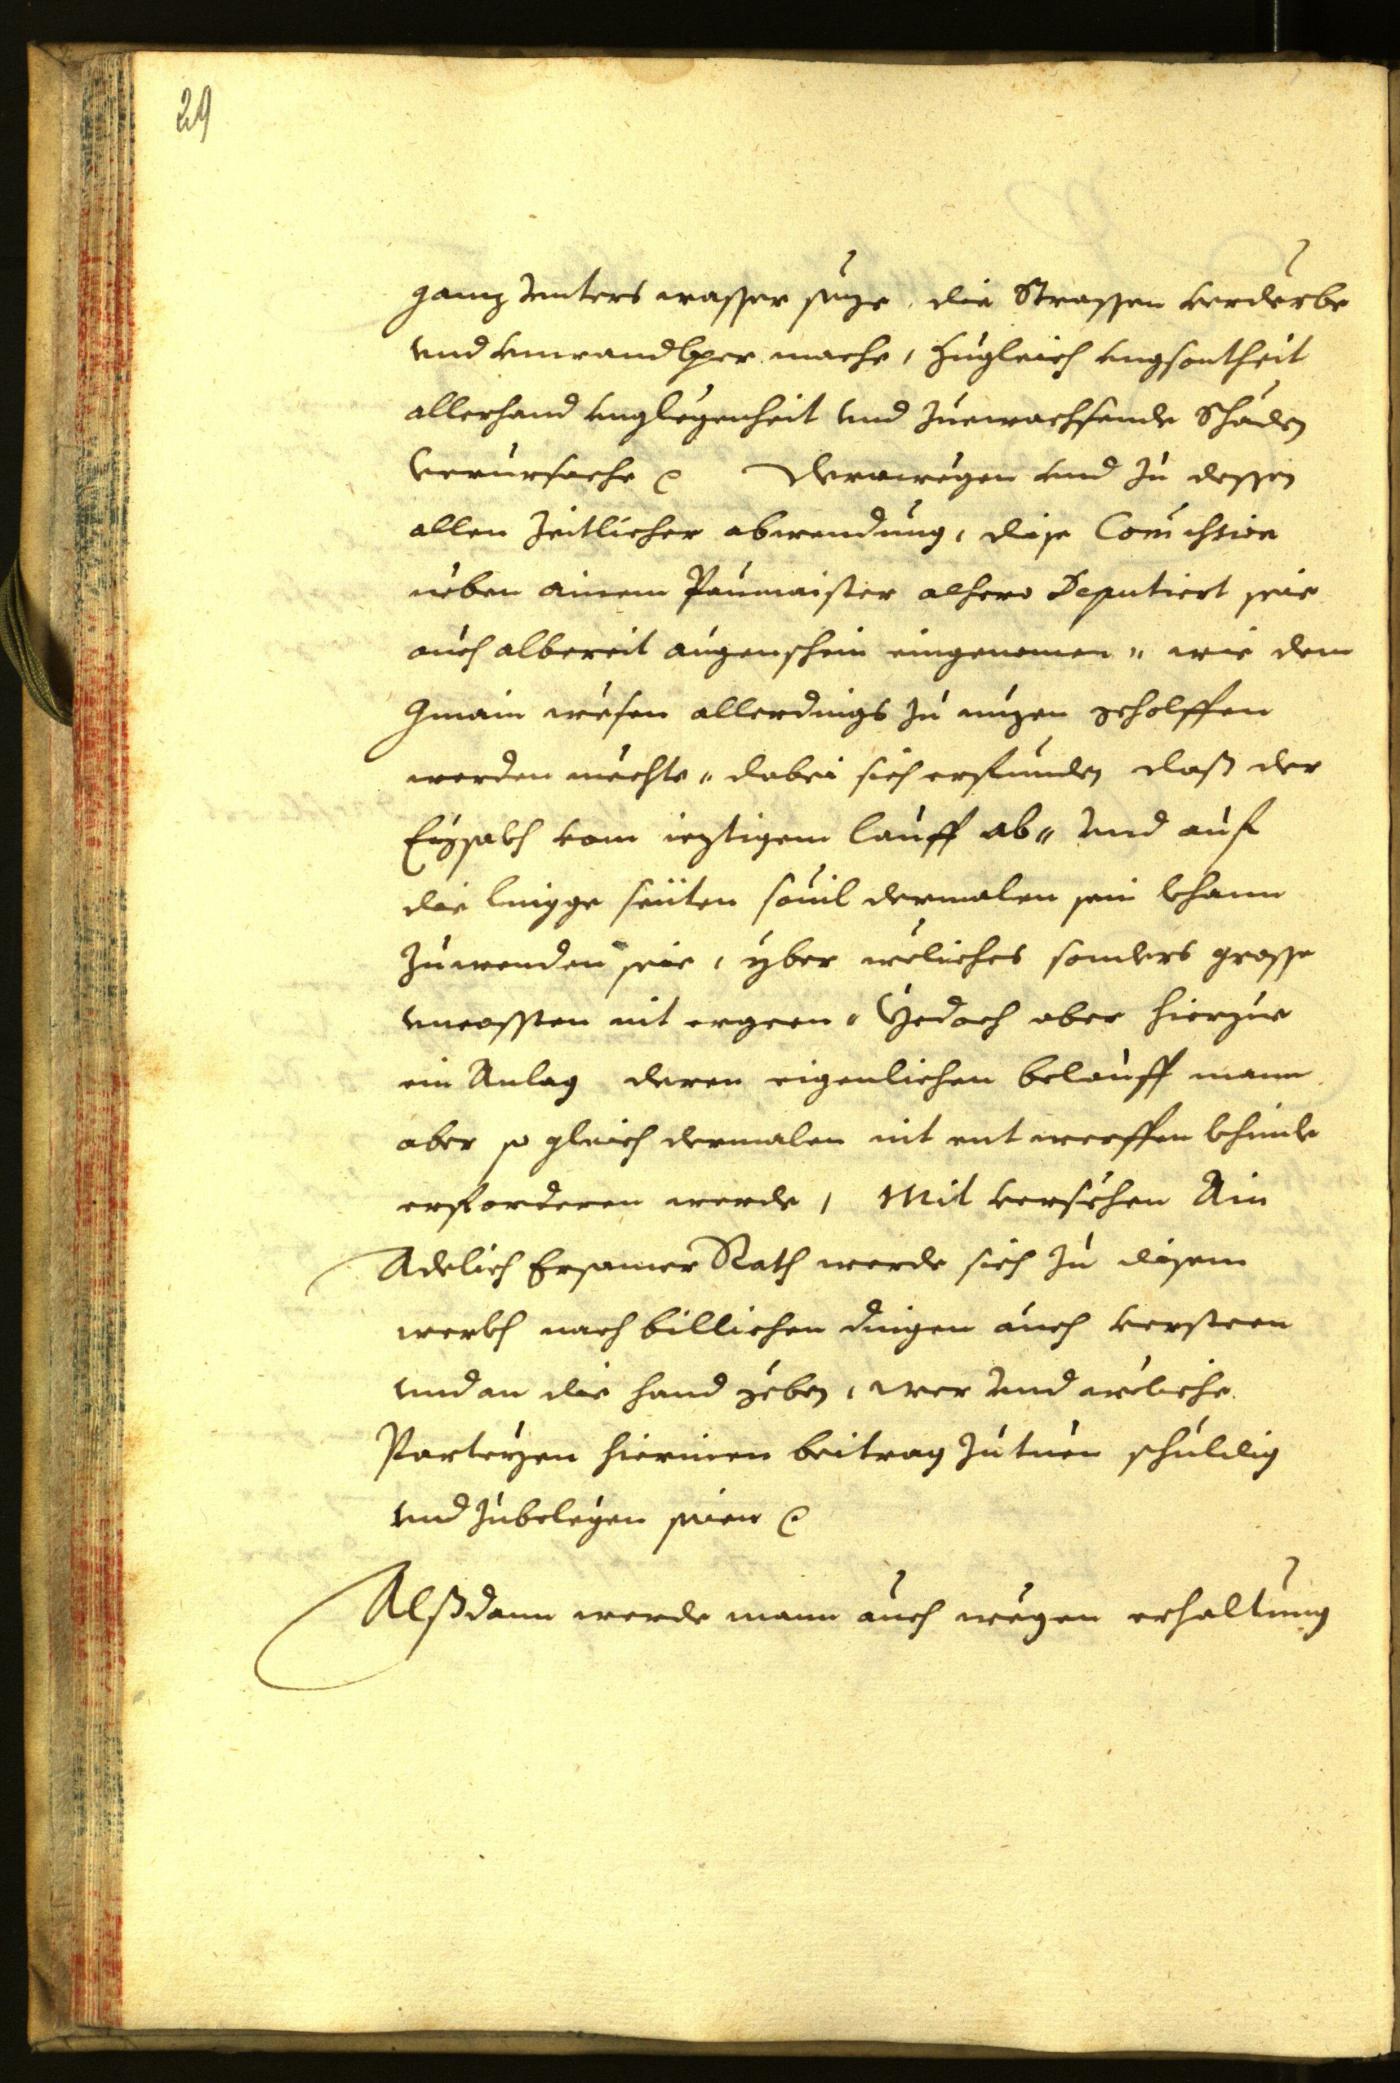 29
ganz unters wasser seze, die Strassen verderbe
und unwandlper mache, zugleich ungsontheit
allerhand unglegenheit und zuewachsende Schäden
verursache @ Derowegen und zu dessen
allen zeitlicher abwendung, dise Com̃ission
neben ainem Paumaister alhero Deputiert seie
auch albereit augenschein eingenomen, wie dem
Gmain wesen allerdings zu nuzen geholffen
werden mechte, dabei sich erfunden dass der
Eysakh vom ieztigem lauff ab, und auf
die lingge seiten souil dermalen sein khann
zuwenden seie, yber weliches sonders grosse
uncossten nit ergeen, Yedoch aber hierzue
ein Anlag deren eigenlichen belauff mann
aber so gleich dermalen nit entwerffen khinde
erforderen werde, Mit versechen Ain
Adelich Ersamer Rath werde sich zu disem
werkh nach billichen dingen auch versteen
und an die hand geben, wer und weliche
Parteyen hierinen beitrag zutuen schuldig
und zubelegen seien @
Alßdann werde mann auch wegen erhaltung